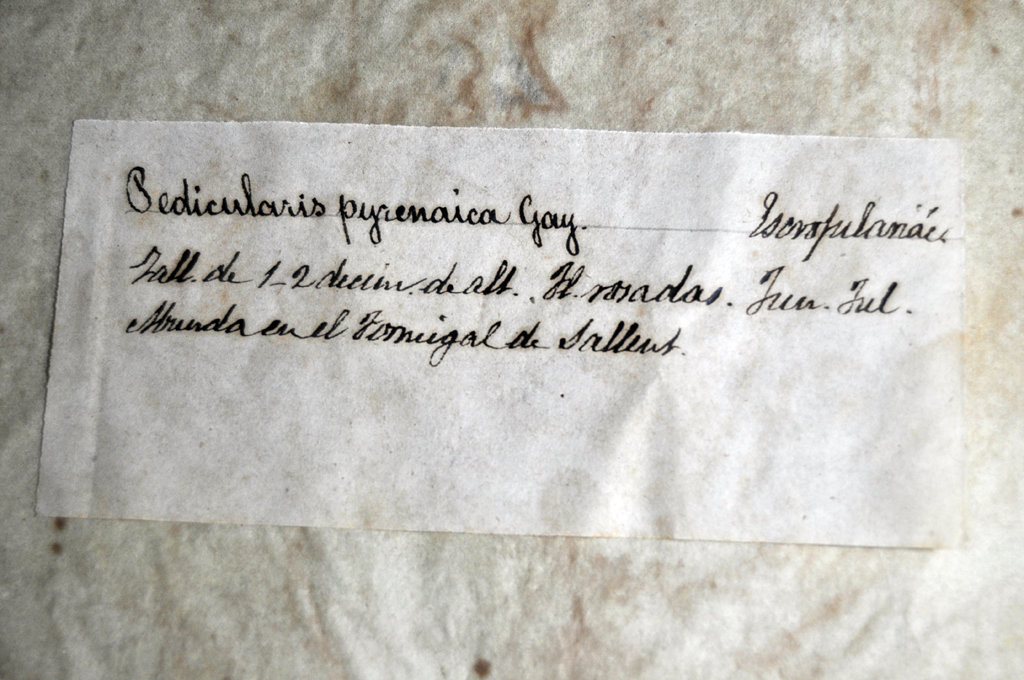 Pedicularis pyrenaica Gay. Escrofulariác.
Tall. de 1-2 decím. de alt. Fl. rosadas. Jun. Jul.
Abunda en el Formigal de Sallent.